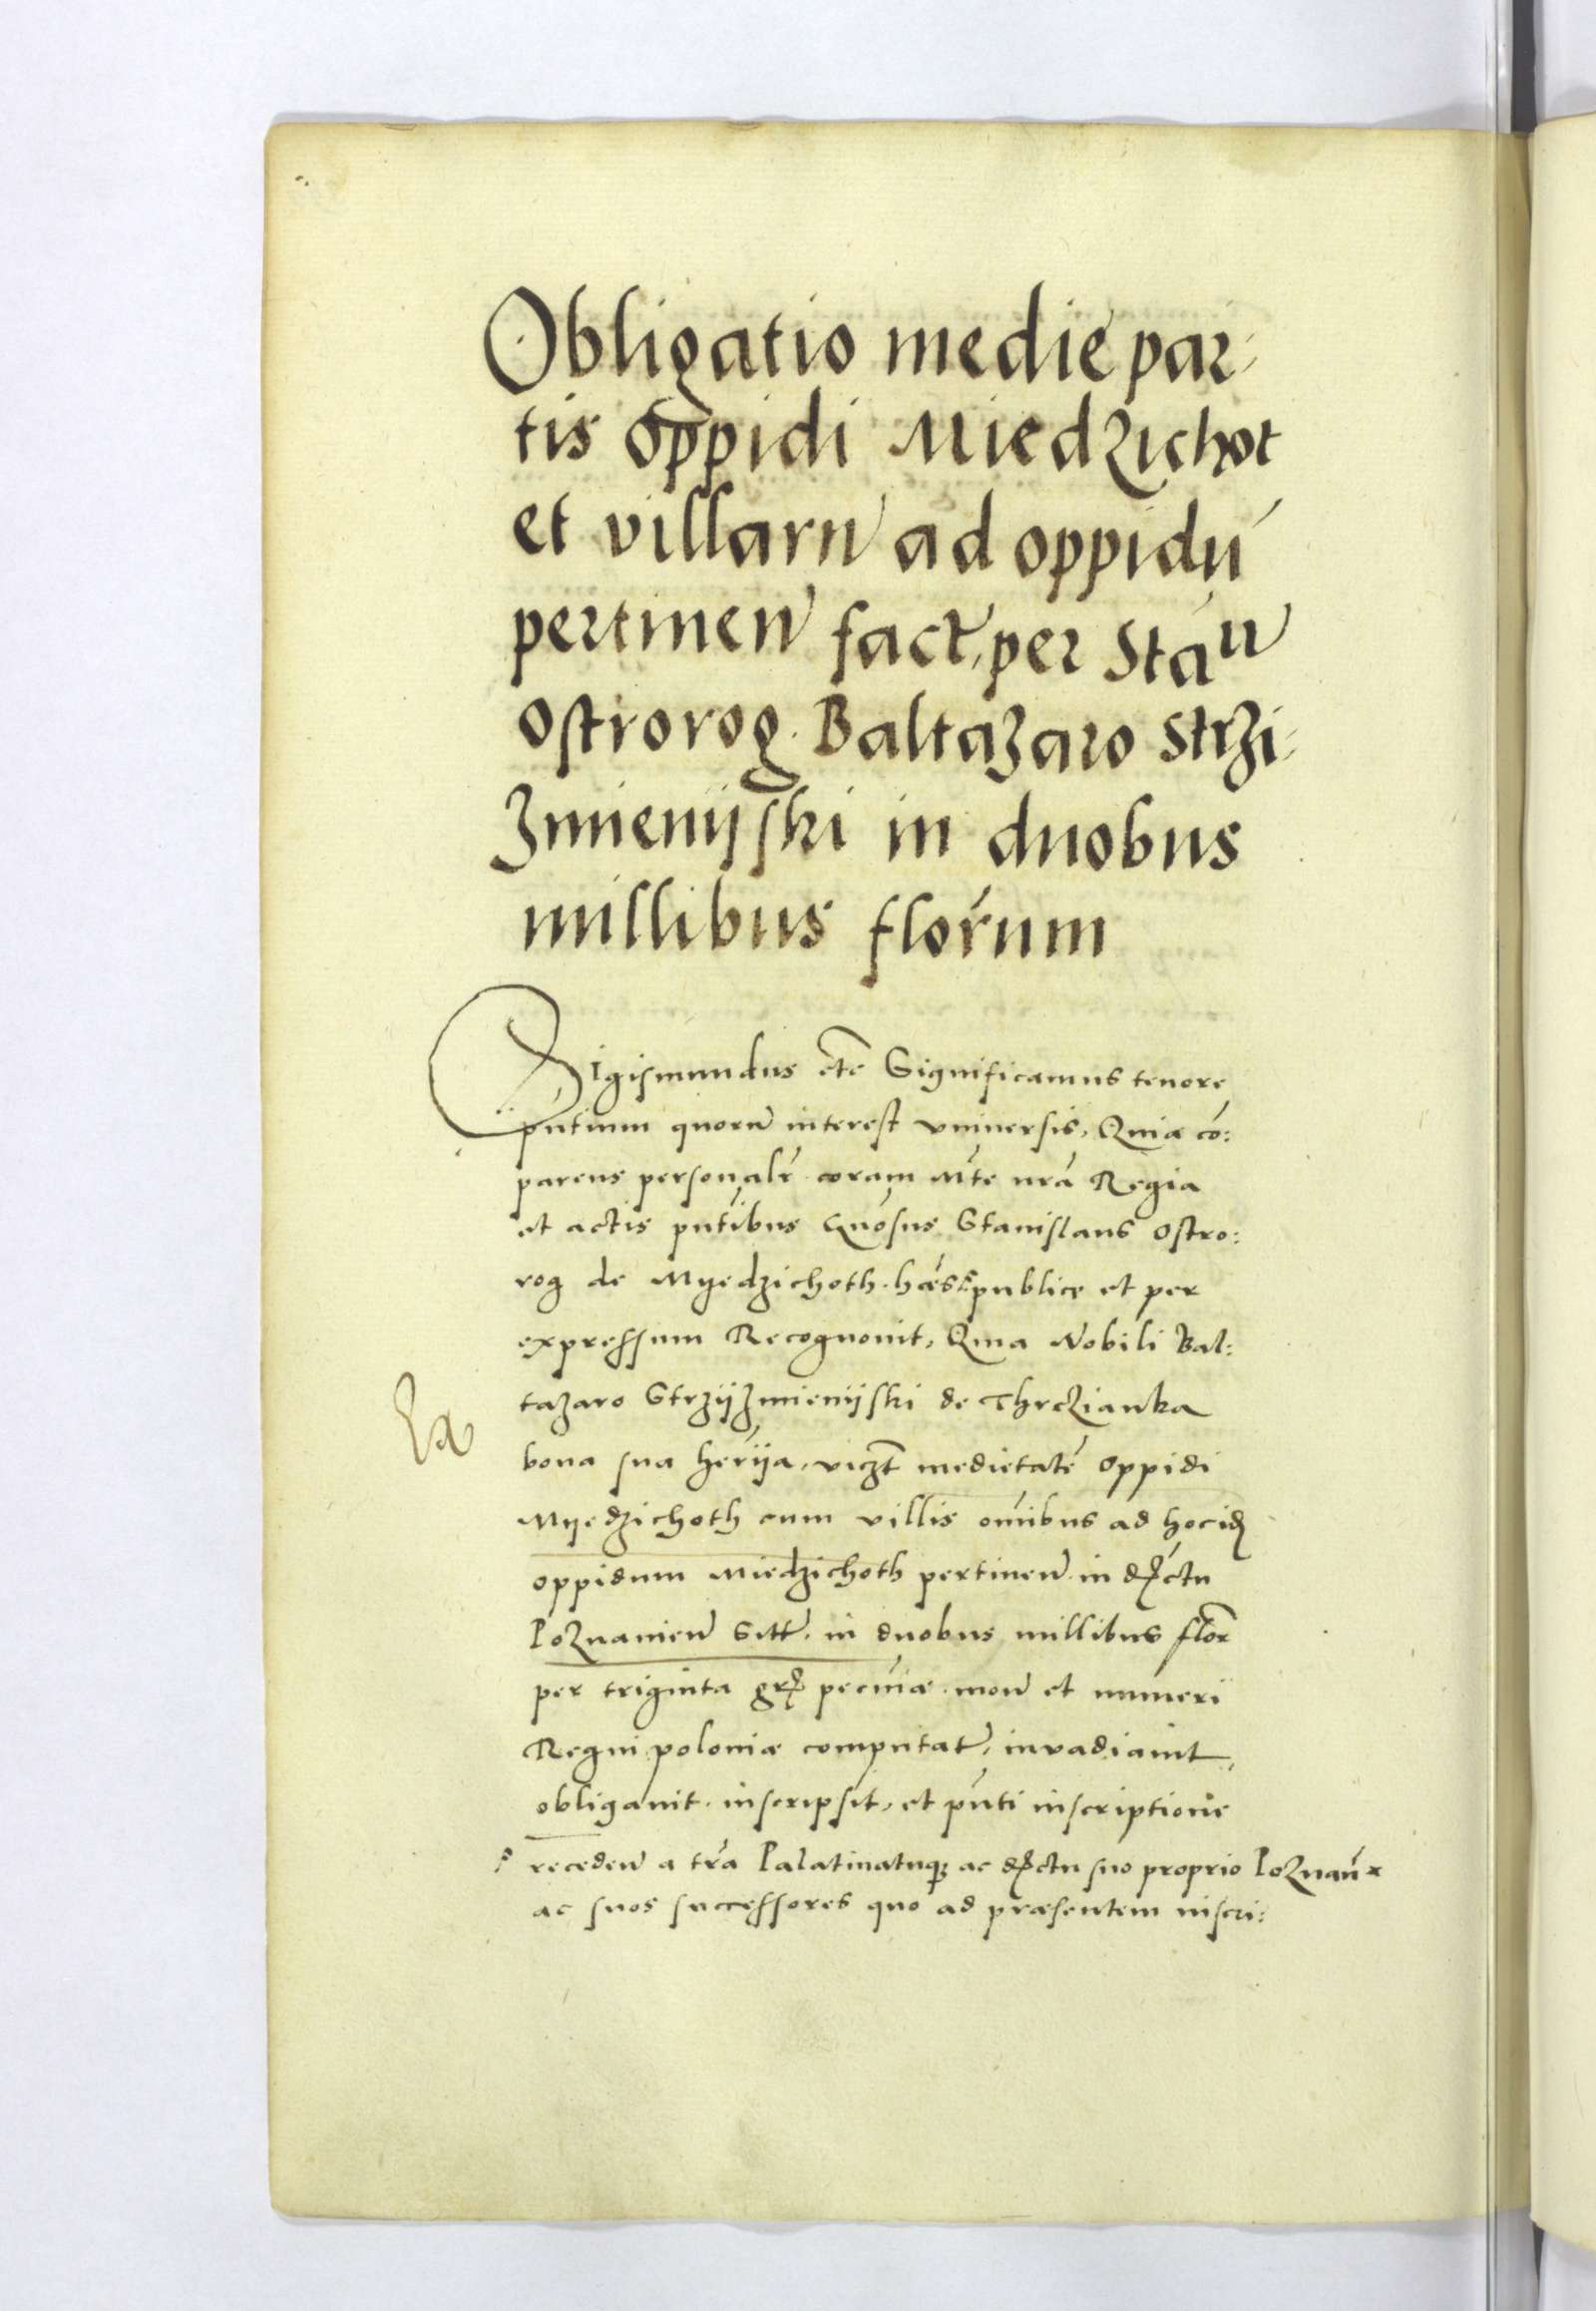 Obligatio medie par-
tis oppidi Miedzichot
et villarn ad oppidū
pertinen fact, per Stan
Ostrorog. Baltazaro Strzi-
zmienijski in duobus
millibus florum
Sigismundus etc Significamus tenore
pntium quorn interest vniuersis, Quia co:
parens personalr coram Mte nra Regia
et actis pntibus Gnosus Stanislaus Ostro:
rog de Myedzichoth. hæs publice et per
expressum Recognouit, Quia Nobili Bal:
tazaro Strzijzmienijski de Thrczianka
bona sua herija, viczt medietatē oppidi
Myedzichoth cum villis omibus ad hocid
oppidum Miedzichoth pertinen in drctu
Poznanien sitt. in duobus millibus flor
per triginta gr pecuniæ mon et numeri
Regni poloniæ computat, invadiauit,
obligauit. inscripsit, et pnti inscriptione
receden a tra Palatinatuq ac drctu suo proprio Poznan x
ac suos successores quo ad præsentem inscri: